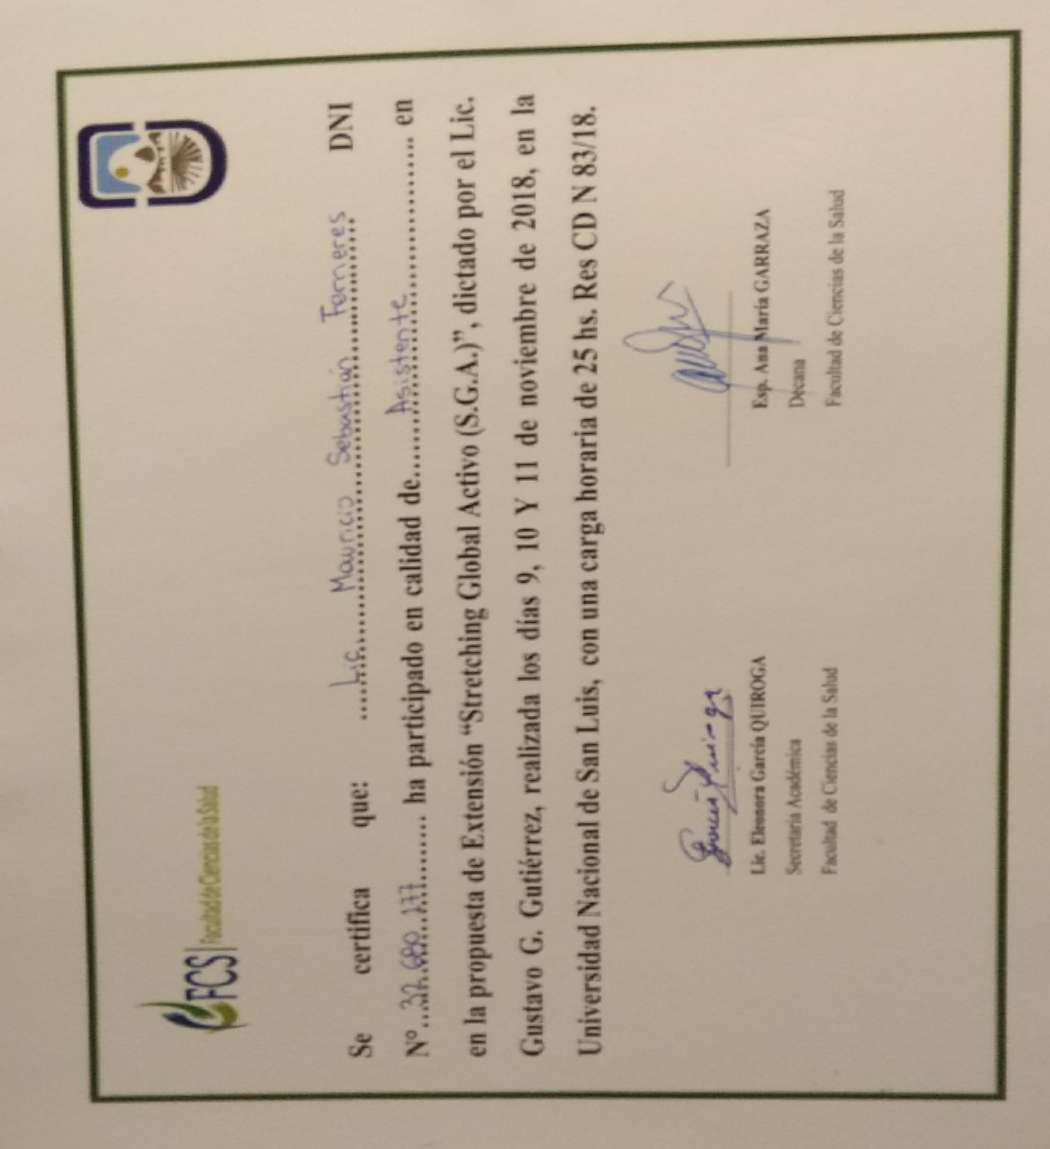 FCS Facultad de Ciencias de la Salud
Se certifica que: ....Lic. Mauricio Sebastián Ferneres DNI
Nº...32.680.177......... ha participado en calidad de.......Asistente........................... en
en la propuesta de Extensión “Stretching Global Activo (S.G.A.)”, dictado por el Lic.
Gustavo G. Gutiérrez, realizada los días 9, 10 Y 11 de noviembre de 2018, en la
Universidad Nacional de San Luis, con una carga horaria de 25 hs. Res CD N 83/18.
García Quiroga
Lic. Eleonora García QUIROGA
Secretaria Académica
Facultad de Ciencias de la Salud
Esp. Ana María GARRAZA
Decana
Facultad de Ciencias de la Salud